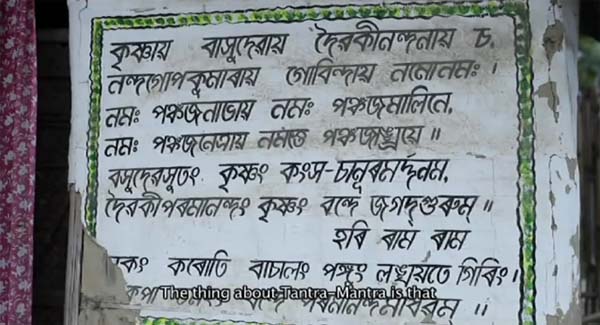 কৃষ্ণায় বাসুদেৱায় দৈৱকীনন্দনায় চ,
নন্দগোপকুমাৰায় গোবিন্দায় নমোনমঃ ।
নমঃ পঙ্কজনাভায় নমঃ পঙ্কজমালিনে,
নমঃ পঙ্কজনেত্ৰায় নমস্তে পঙ্কজাঙ্ঘ্ৰয়ে ॥
বসুদেৱসুতং কৃষ্ণং কংস-চানূৰমৰ্দ্দনম,
দৈৱকীপৰমানন্দং কৃষ্ণং বন্দে জগদ্গুৰুম্ ॥
হৰি ৰাম ৰাম
কৰোতি বাচালং পঙ্গুং লঙ্ঘায়তে গিৰিং ।
The thing about Tantra-Mantra is that